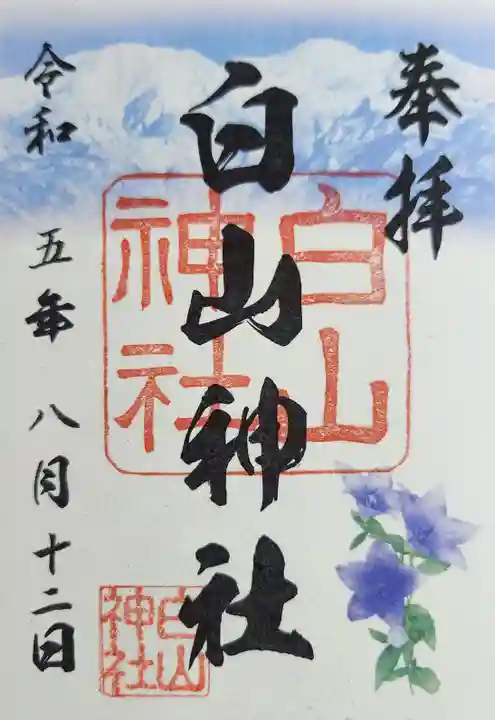 奉拝
白山神社
白山神社
令和五年八月十二日
白山神社